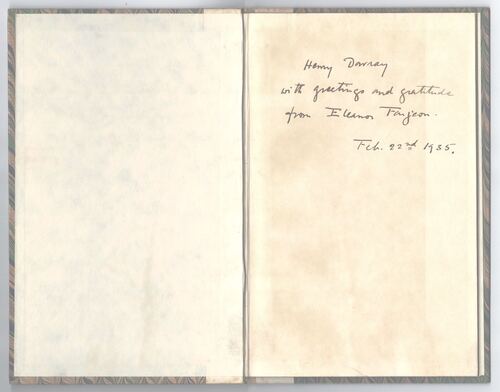 Henry Davray
with greetings and gratitude
from Eleanor Farjeon.
Feb. 22nd 1935.